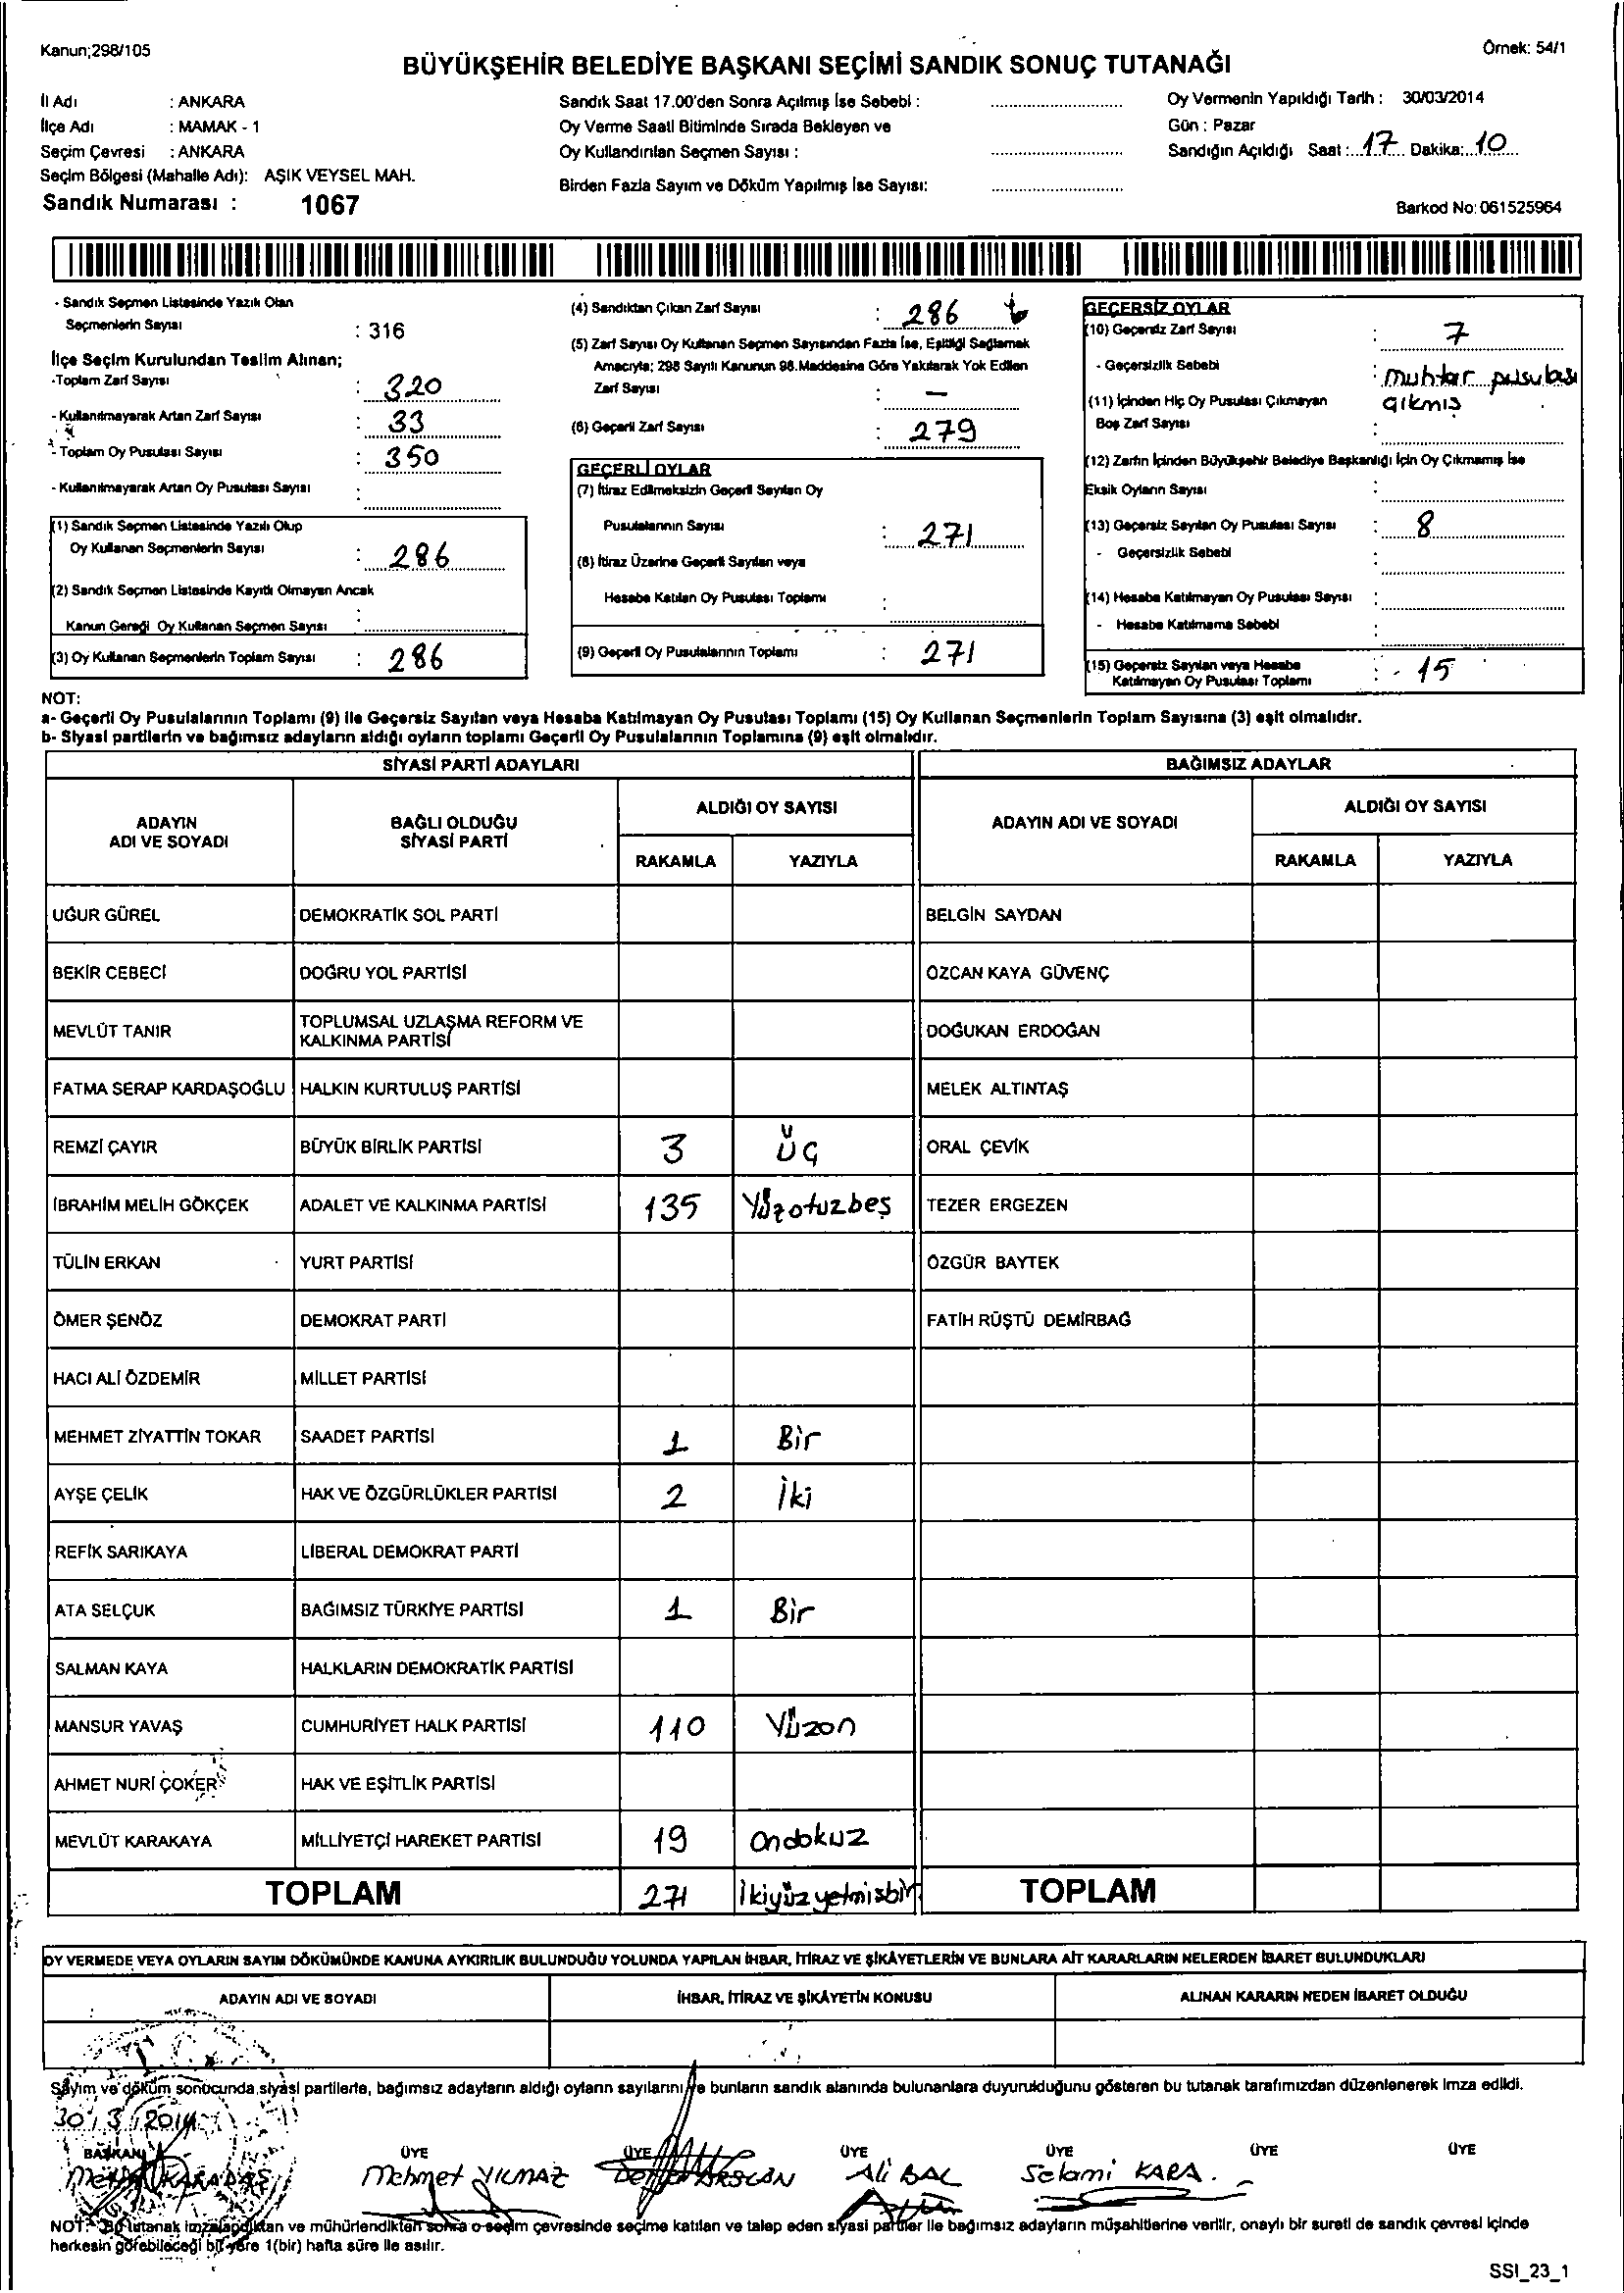 Kanun;298/105
Örnek: 54/1
BÜYÜKŞEHİR BELEDİYE BAŞKANI SEÇİMİ SANDIK SONUÇ TUTANAĞI
İl Adı : ANKARA
İlçe Adı : MAMAK - 1
Seçim Çevresi : ANKARA
Seçim Bölgesi (Mahalle Adı): AŞIK VEYSEL MAH.
Sandık Numarası : 1067
Sandık Saat 17.00'den Sonra Açılmış İse Sebebi :
Oy Verme Saati Bitiminde Sırada Bekleyen ve
Oy Kullandırılan Seçmen Sayısı :
Birden Fazla Sayım ve Döküm Yapılmış İse Sayısı:
Oy Vermenin Yapıldığı Tarih : 30/03/2014
Gün : Pazar
Sandığın Açıldığı Saat : 17 Dakika: 10
Barkod No: 061525964
- Sandık Seçmen Listesinde Yazılı Olan
Seçmenlerin Sayısı : 316
İlçe Seçim Kurulundan Teslim Alınan;
-Toplam Zarf Sayısı : 320
- Kullanılmayarak Artan Zarf Sayısı : 33
- Toplam Oy Pusulası Sayısı : 350
- Kullanılmayarak Artan Oy Pusulası Sayısı :
(1) Sandık Seçmen Listesinde Yazılı Olup
Oy Kullanan Seçmenlerin Sayısı : 286
(2) Sandık Seçmen Listesinde Kayıtlı Olmayan Ancak
Kanun Gereği Oy Kullanan Seçmen Sayısı :
(3) Oy Kullanan Seçmenlerin Toplam Sayısı : 286
(4) Sandıktan Çıkan Zarf Sayısı : 286
(5) Zarf Sayısı Oy Kullanan Seçmen Sayısından Fazla İse, Eşitliği Sağlamak
Amacıyla; 298 Sayılı Kanunun 98.Maddesine Göre Yakılarak Yok Edilen
Zarf Sayısı : —
(6) Geçerli Zarf Sayısı : 279
GEÇERLİ OYLAR
(7) İtiraz Edilmeksizin Geçerli Sayılan Oy
Pusulalarının Sayısı : 271
(8) İtiraz Üzerine Geçerli Sayılan veya
Hesaba Katılan Oy Pusulası Toplamı :
(9) Geçerli Oy Pusulalarının Toplamı : 271
GEÇERSİZ OYLAR
(10) Geçersiz Zarf Sayısı : 7
- Geçersizlik Sebebi : muhtar pusulası
çıkmış
(11) İçinden Hiç Oy Pusulası Çıkmayan
Boş Zarf Sayısı :
(12) Zarfın İçinden Büyükşehir Belediye Başkanlığı İçin Oy Çıkmamış İse
Eksik Oyların Sayısı :
(13) Geçersiz Sayılan Oy Pusulası Sayısı : 8
- Geçersizlik Sebebi :
(14) Hesaba Katılmayan Oy Pusulası Sayısı :
- Hesaba Katılmama Sebebi :
(15) Geçersiz Sayılan veya Hesaba
Katılmayan Oy Pusulası Toplamı : - 15
NOT:
a- Geçerli Oy Pusulalarının Toplamı (9) ile Geçersiz Sayılan veya Hesaba Katılmayan Oy Pusulası Toplamı (15) Oy Kullanan Seçmenlerin Toplam Sayısına (3) eşit olmalıdır.
b- Siyasi partilerin ve bağımsız adayların aldığı oyların toplamı Geçerli Oy Pusulalarının Toplamına (9) eşit olmalıdır.
SİYASİ PARTİ ADAYLARI
BAĞIMSIZ ADAYLAR
ADAYIN
ADI VE SOYADI
BAĞLI OLDUĞU
SİYASİ PARTİ
ALDIĞI OY SAYISI
RAKAMLA YAZIYLA
ADAYIN ADI VE SOYADI
ALDIĞI OY SAYISI
RAKAMLA YAZIYLA
UĞUR GÜREL DEMOKRATİK SOL PARTİ BELGİN SAYDAN
BEKİR CEBECİ DOĞRU YOL PARTİSİ ÖZCAN KAYA GÜVENÇ
MEVLÜT TANIR TOPLUMSAL UZLAŞMA REFORM VE
KALKINMA PARTİSİ DOĞUKAN ERDOĞAN
FATMA SERAP KARDAŞOĞLU HALKIN KURTULUŞ PARTİSİ MELEK ALTINTAŞ
REMZİ ÇAYIR BÜYÜK BİRLİK PARTİSİ 3 Üç ORAL ÇEVİK
İBRAHİM MELİH GÖKÇEK ADALET VE KALKINMA PARTİSİ 135 Yüzotuzbeş TEZER ERGEZEN
TÜLİN ERKAN YURT PARTİSİ ÖZGÜR BAYTEK
ÖMER ŞENÖZ DEMOKRAT PARTİ FATİH RÜŞTÜ DEMİRBAĞ
HACI ALİ ÖZDEMİR MİLLET PARTİSİ
MEHMET ZİYATTİN TOKAR SAADET PARTİSİ 1 Bir
AYŞE ÇELİK HAK VE ÖZGÜRLÜKLER PARTİSİ 2 İki
REFİK SARIKAYA LİBERAL DEMOKRAT PARTİ
ATA SELÇUK BAĞIMSIZ TÜRKİYE PARTİSİ 1 Bir
SALMAN KAYA HALKLARIN DEMOKRATİK PARTİSİ
MANSUR YAVAŞ CUMHURİYET HALK PARTİSİ 110 Yüzon
AHMET NURİ ÇOKER HAK VE EŞİTLİK PARTİSİ
MEVLÜT KARAKAYA MİLLİYETÇİ HAREKET PARTİSİ 19 Ondokuz
TOPLAM 271 İkiyüzyetmişbir TOPLAM
OY VERMEDE VEYA OYLARIN SAYIM DÖKÜMÜNDE KANUNA AYKIRILIK BULUNDUĞU YOLUNDA YAPILAN İHBAR, İTİRAZ VE ŞİKÂYETLERİN VE BUNLARA AİT KARARLARIN NELERDEN İBARET BULUNDUKLARI
ADAYIN ADI VE SOYADI İHBAR, İTİRAZ VE ŞİKÂYETİN KONUSU ALINAN KARARIN NEDEN İBARET OLDUĞU
Sayım ve döküm sonucunda siyasi partilerle, bağımsız adayların aldığı oyların sayılarını ve bunların sandık alanında bulunanlara duyurulduğunu gösteren bu tutanak tarafımızdan düzenlenerek imza edildi.
30 / 3 / 2014
BAŞKAN ÜYE ÜYE ÜYE ÜYE ÜYE ÜYE
KARADAŞ Mehmet YILMAZ ARSLAN Ali BAL Selami KARA
NOT: Bu tutanak imzalandıktan ve mühürlendikten sonra o seçim çevresinde seçime katılan ve talep eden siyasi partiler ile bağımsız adayların müşahitlerine verilir, onaylı bir sureti de sandık çevresi içinde
herkesin görebileceği bir yere 1(bir) hafta süre ile asılır.
SSI_23_1